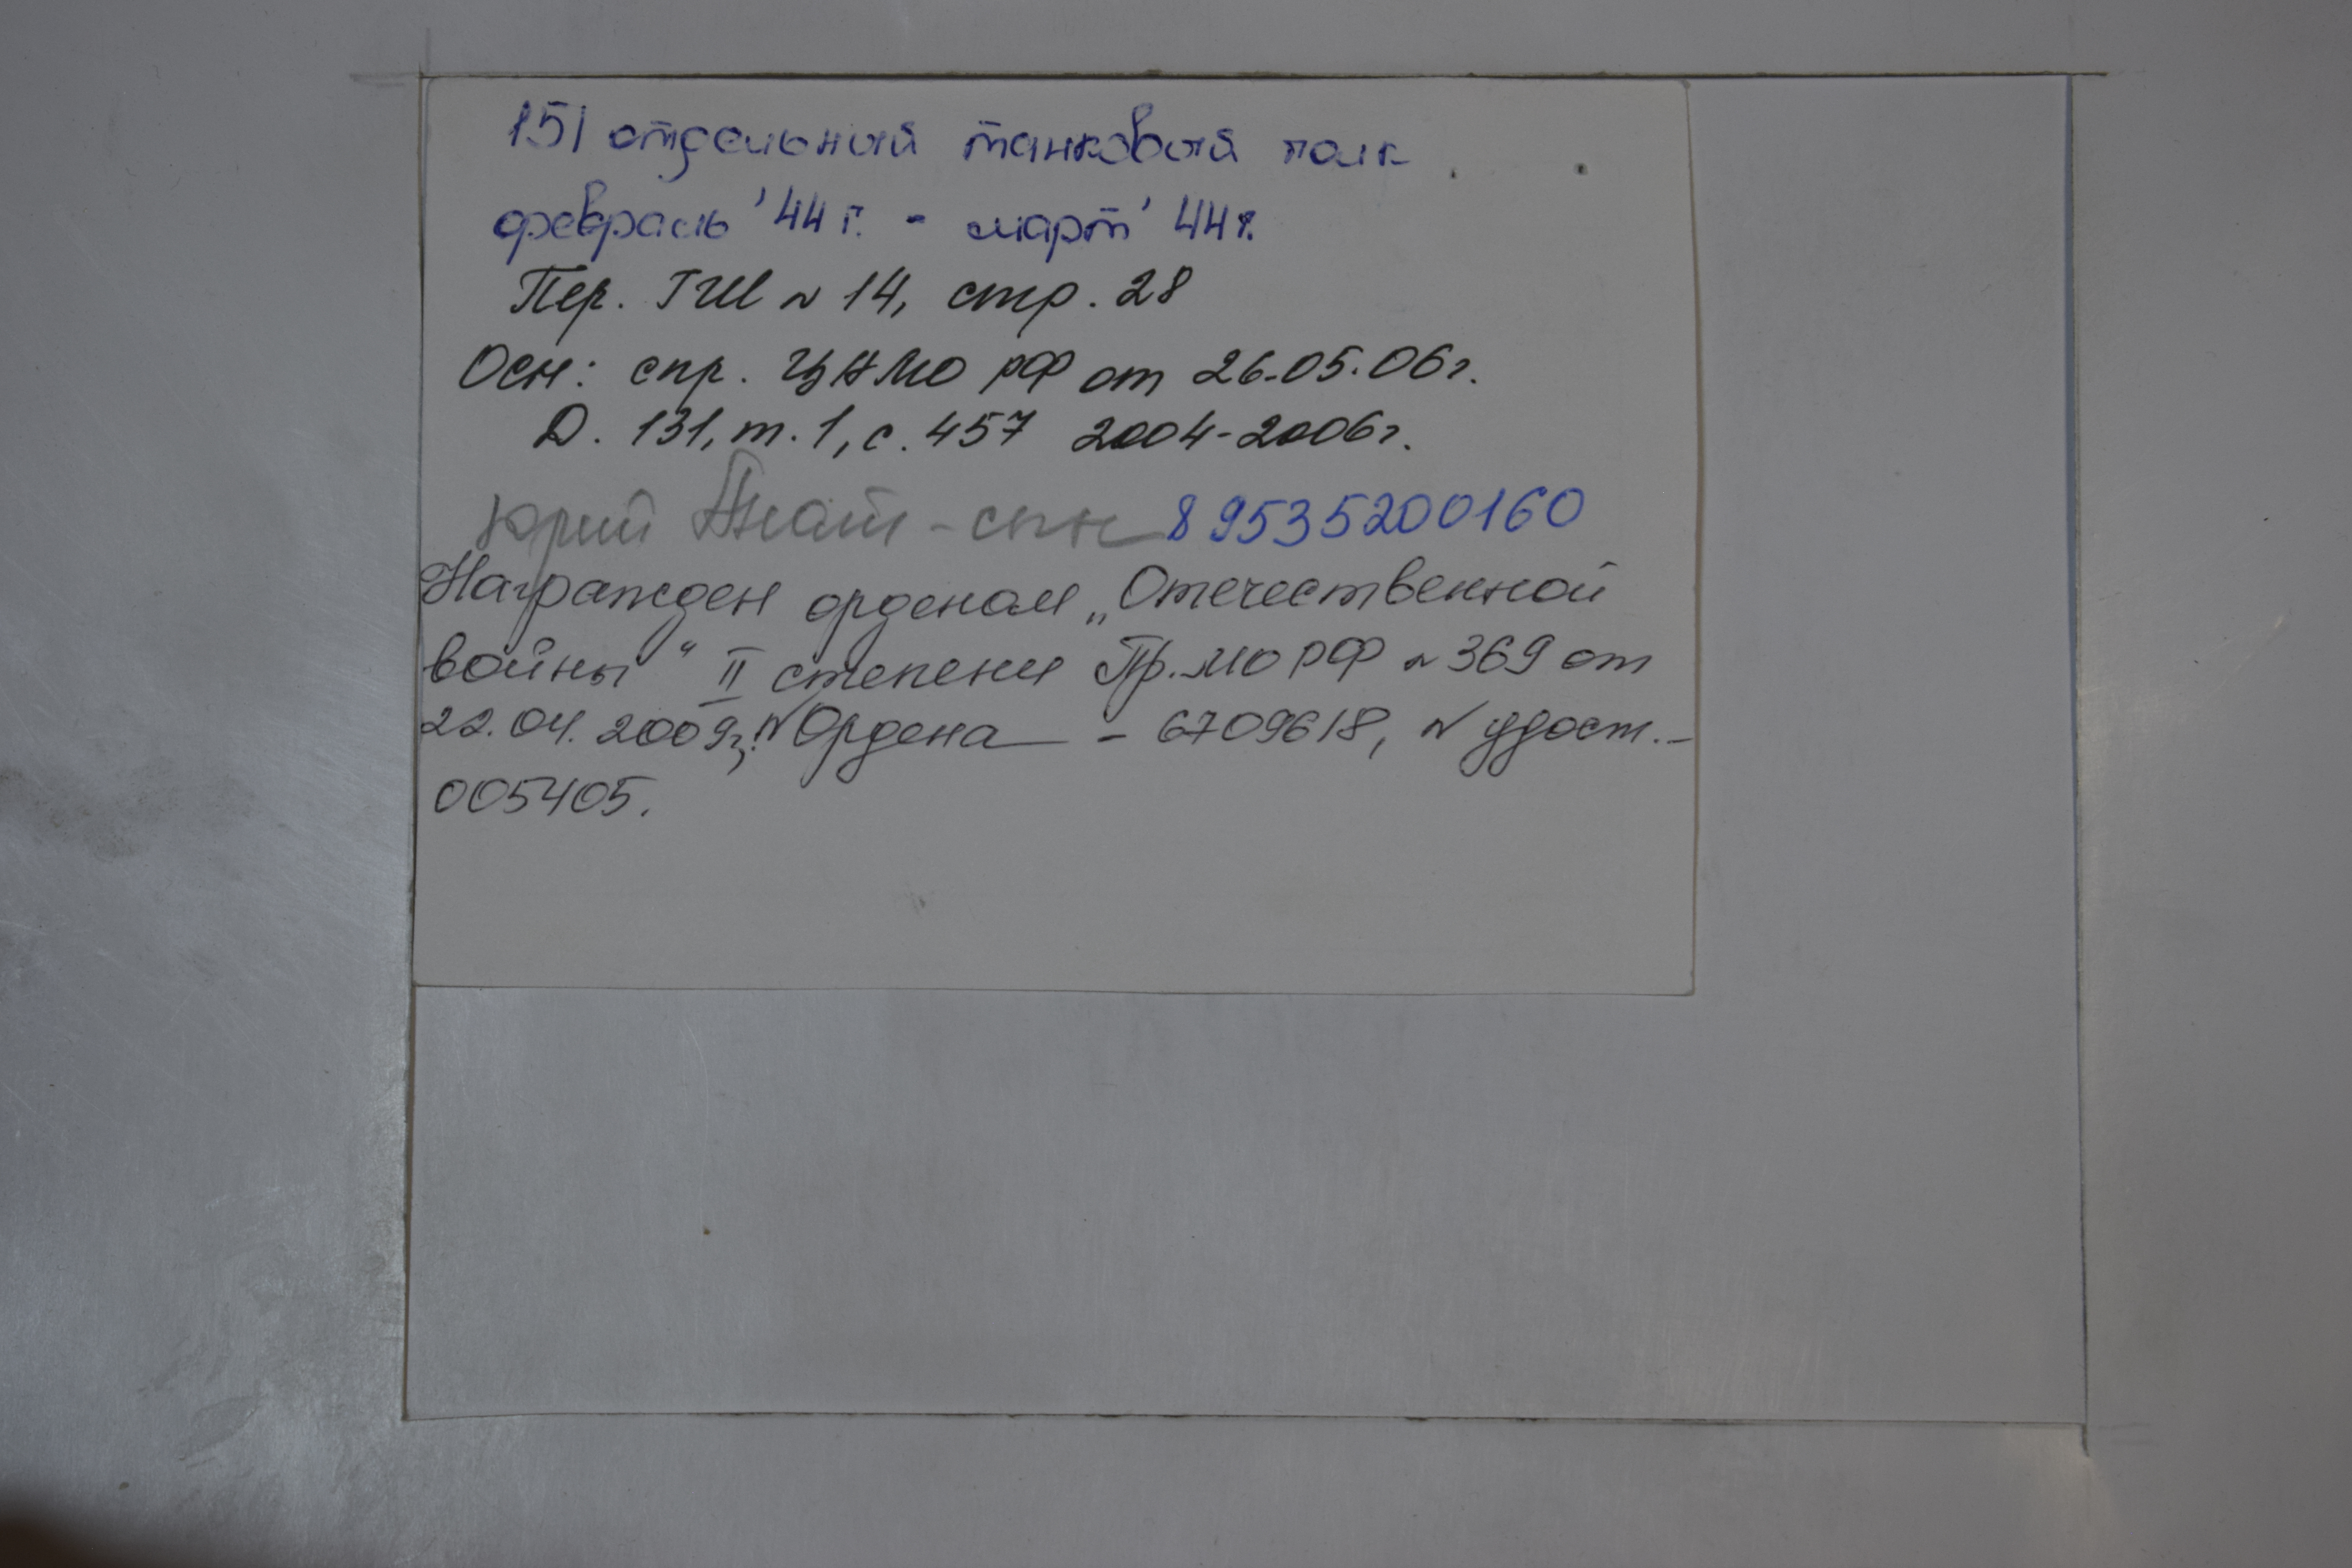 151 отдельный танковый полк
февраль '44 г. - март '44 г.
Пер. ГШ № 14, стр. 28
Осн: спр. ЦАМО РФ от 26.05.06 г.
Д. 131, т. 1, с. 457 2004-2006 г.
Юрий - сын 89535200160
Награжден орденом „Отечественной
войны" II степени Пр. МО РФ № 369 от
22.04.2009 г. № Ордена - 6709618, № удост. -
005405.